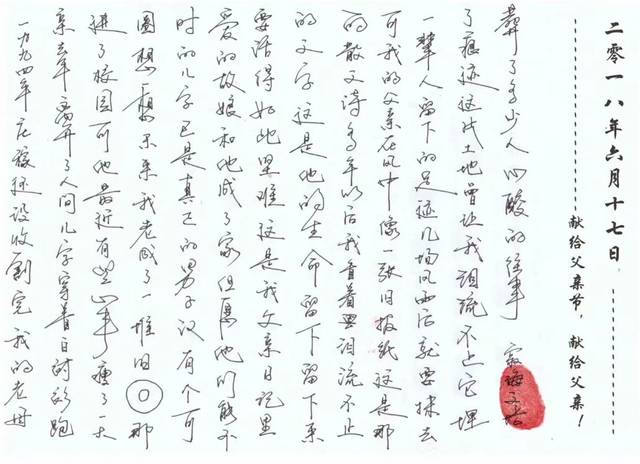 一九九四年庄稼还没收割完我的老母
亲去年离开了人间儿子穿着白衬衫跑
进了校园可他最近有些心事瘦了一大
圈想一想未来我老成了一堆旧〇那
时的儿子已是真正的男子汉有个可
爱的姑娘和他成了家但愿他们能不
要活得如此艰难这是我父亲日记里
的文字这是他的生命留下留下来
的散文诗多年以后我看着泪流不止
可我的父亲在风中像一张旧报纸这是那
一辈人留下的足迹几场风雨后就要抹去
了痕迹这片土地曾让我泪流不止它埋
葬了多少人心酸的往事
------献给父亲节,献给父亲!
二零一八年六月十七日------